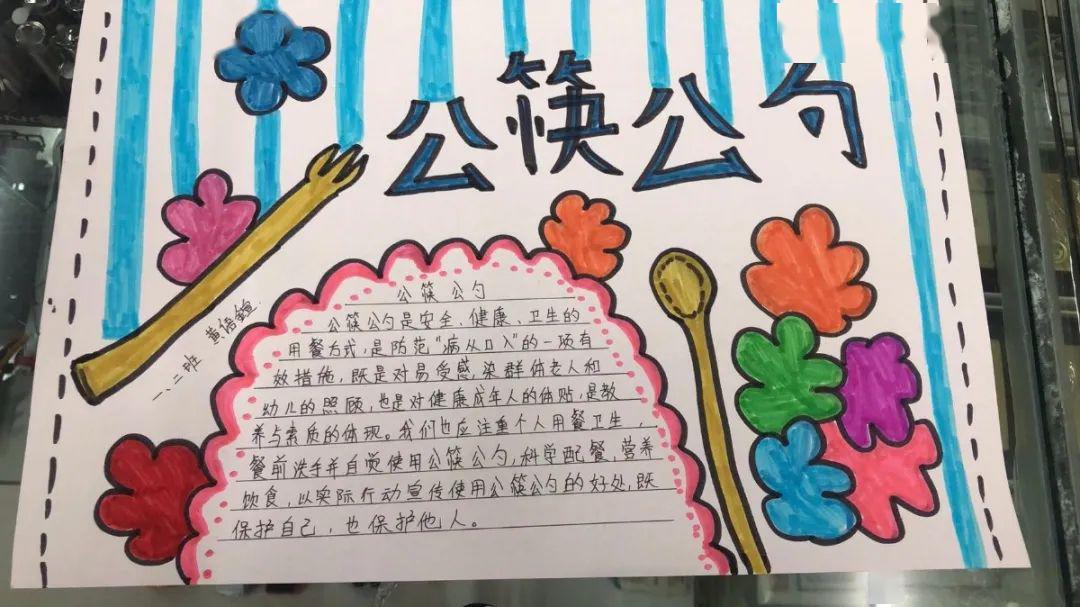 公筷公勺
一、二班 黄语萱
公筷公勺
公筷公勺是安全、健康、卫生的
用餐方式,是防范"病从口入"的一项有
效措施,既是对易受感染群体老人和
幼儿的照顾,也是对健康成年人的体贴,是教
养与素质的体现。我们也应注重个人用餐卫生,
餐前洗手并自觉使用公筷公勺,科学配餐,营养
饮食,以实际行动宣传使用公筷公勺的好处,既
保护自己,也保护他人。